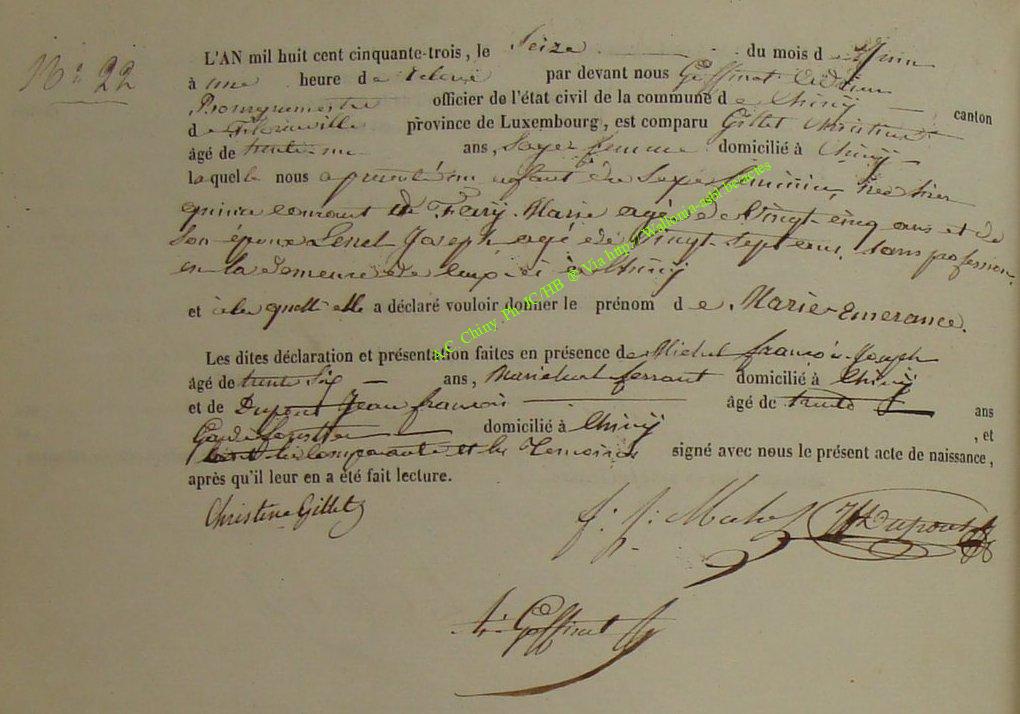 N° 22
L'AN mil huit cent cinquante-trois, le Seize du mois de Juin
à une heure de relevé par devant nous Goffinet
Bourgmestre officier de l'état civil de la commune de Chiny canton
de Florenville province de Luxembourg, est comparu Gillet Christine
âgé de trente un ans, Sage femme domicilié à Chiny
laquelle nous a présenté un enfant du Sexe féminin, née hier
quinze courant de Fery Marie agé de Vingt cinq ans et de
Son époux Lenel Joseph agé de Vingt Sept ans, sans profession
en la demeure de à Chiny
et à la quelle elle a déclaré vouloir donner le prénom de Marie Emerance.
Les dites déclaration et présentation faites en présence de Michel françois Joseph
âgé de trente Six ans, Marechal ferrant domicilié à Chiny
et de Dupont Jean francois âgé de trente ans
Garde forestier domicilié à Chiny , et
la Comparante et les Temoins signé avec nous le présent acte de naissance,
après qu'il leur en a été fait lecture.
Christine Gillet
f. j. Dupont
Goffinet
A.C. Chiny. Ph JC/HB @ Via http://Wallonia-asbl.be/actes